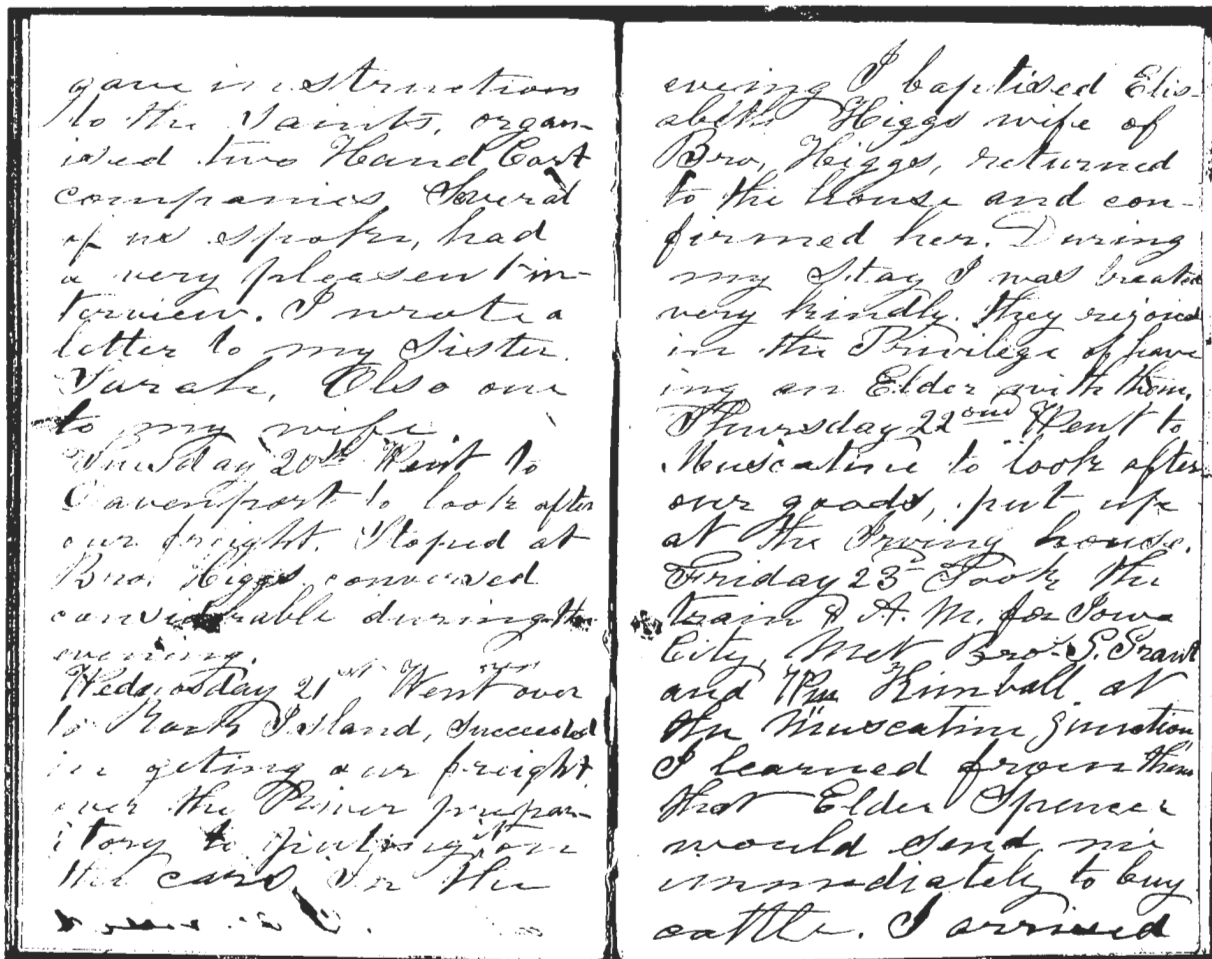 gave instructions
to the Saints, organ-
ised two Hand Cart
companies Several
of us spoke, had
a very pleasent in-
terview. I wrote a
letter to my Sister
Sarah, Also one
to my wife
Tuesday 20th Went to
Davenport to look after
our freight. Stoped at
Bro. Higgs, conversed
considerable during the
evening.
Wednosday 21st Went over
to Rock Island, Succeeded
in geting our freight
over the River prepar-
itory to puting on
the cars, In the
evening I baptised Elis-
abeth Higgs wife of
Bro, Higgs, returned
to the house and con-
firmed her. During
my Stay I was treated
very kindly. they rejoiced
in the Privilege of have
ing an Elder with them.
Thursday 22ond Went to
Muscatine to look after
our goods, put up
at the Irving house.
Friday 23 Took the
train A. M. for Iowa
City, Met Bro. G. Grant
and Wm Kimball at
the Muscatine Junction
I learned from them
that Elder Spencer
would send me
immediately to buy
cattle. I arrived